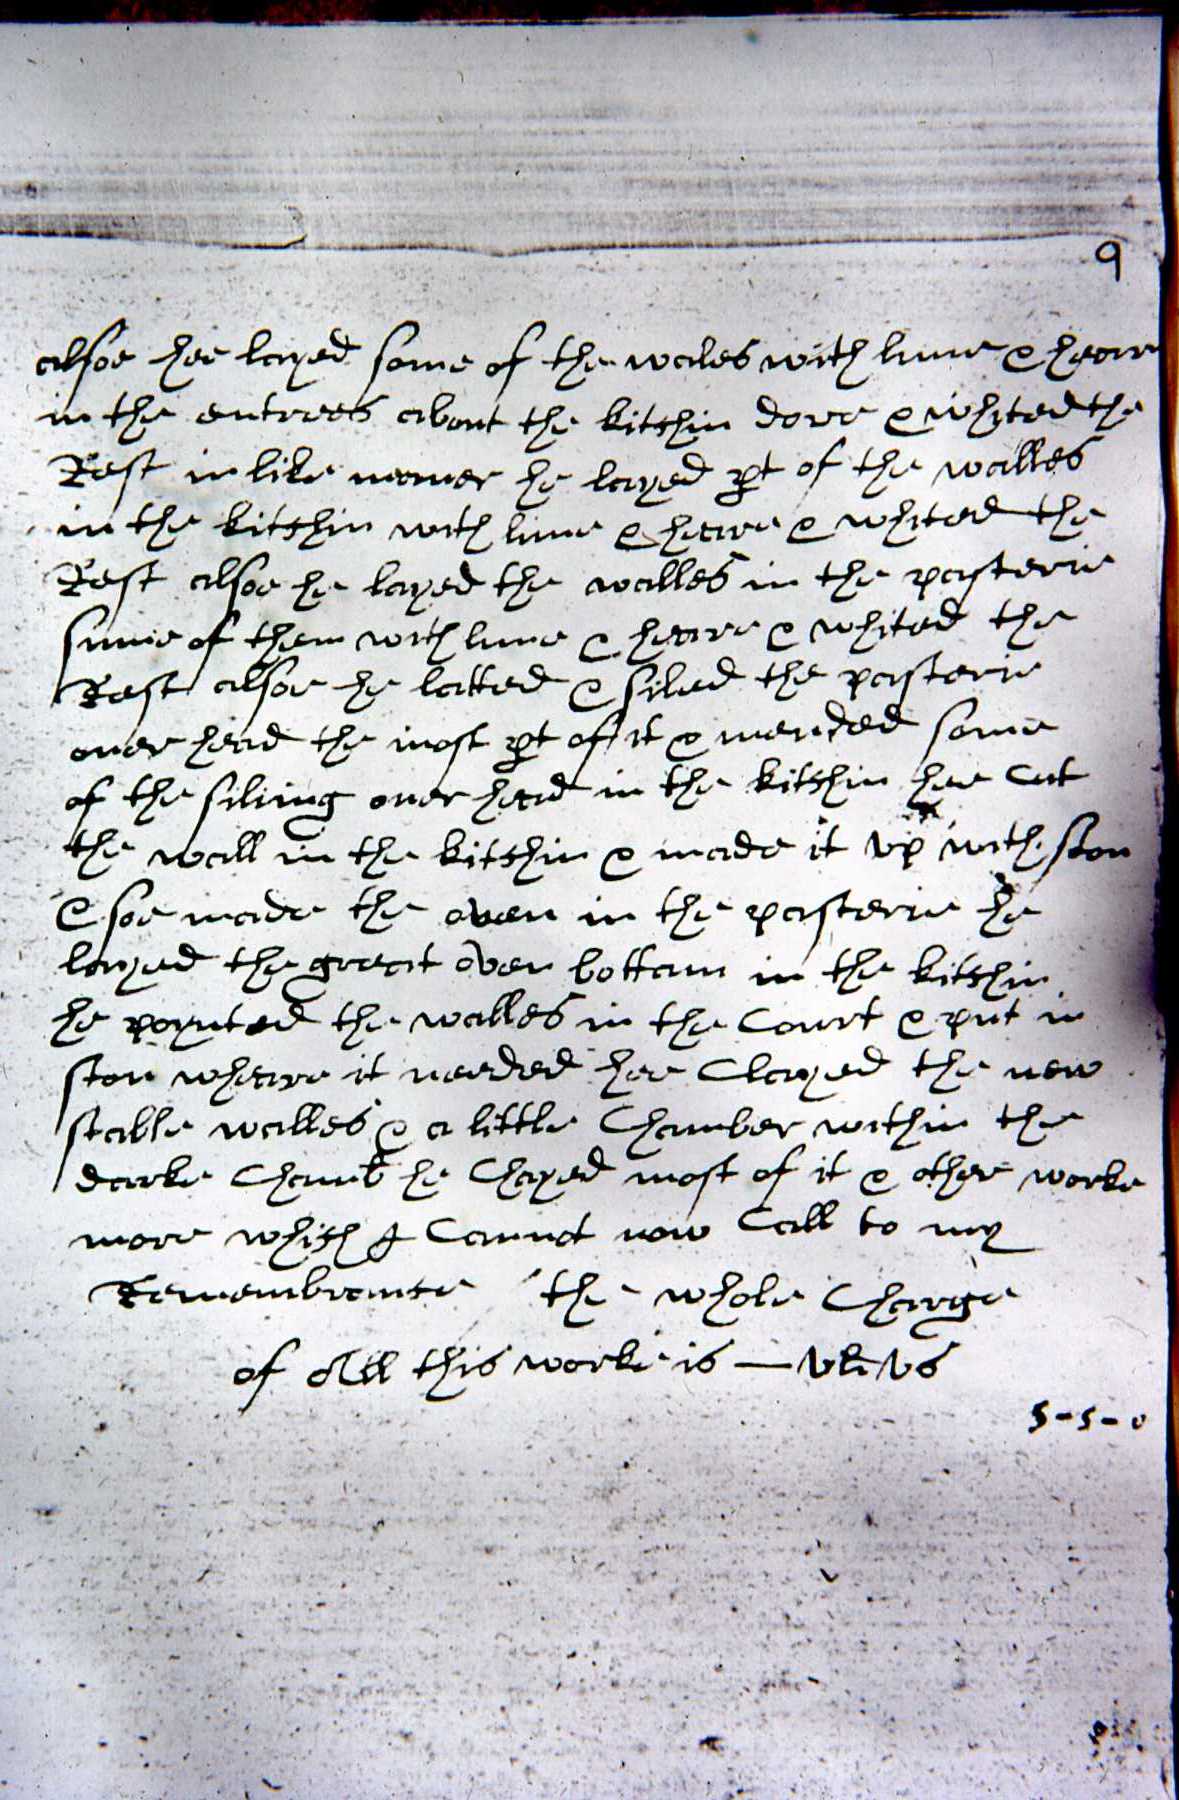 9
alsoe hee layed some of the wales with lime & heare
in the entrees about the kitchin dore & whited the
Rest in like maner he layed pt of the walles
in the kitchin with lime & heare & whited the
Rest alsoe he layed the walles in the pasterie
sume of them with lime & heare & whited the
Rest alsoe he latted & siled the pasterie
ouer head the most pt of it & mended some
of the siling ouer head in the kitchin hee Cut
the wall in the kitchin & made it vp with ston
& soe made the oven in the pasterie he
layed the great oven bottam in the kitchin
he poynted the walles in the Court & put in
ston wheare it needed hee Clayed the new
stable walles & a little Chamber within the
darke Chamb he Clayed most of it & other worke
more which I Cannot now Call to my
Remembrance the whole Charge
of All this worke is — vli vs
5-5-0